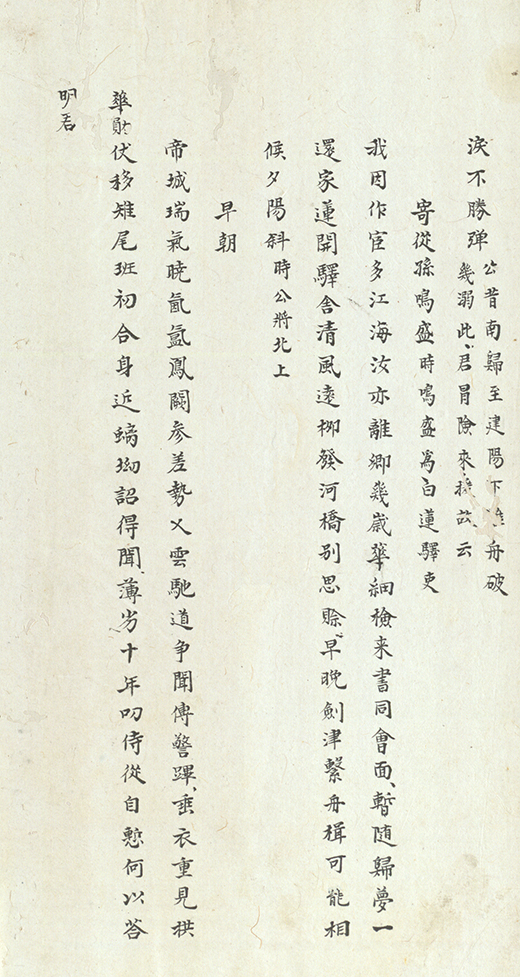 淚不勝彈
公昔南歸至建陽下灘舟破
幾溺此君冒險來援故云
寄從孫鳴盛時鳴盛為白蓮驛吏
我因作宦多江海汝亦離鄉幾歲華細檢来書同會面暫随歸夢一
還家蓮開驛舎清風遠栁發河橋别思賒早晚劍津繫舟楫可能相
候夕陽斜時公將北上
早朝
帝城瑞氣曉氤氲鳳闕参差勢乂雲馳道争聞傳警蹕垂衣重見拱
華勛伏移雉尾班初合身近螭坳詔得聞薄劣十年叨侍從自慙何以荅
明君